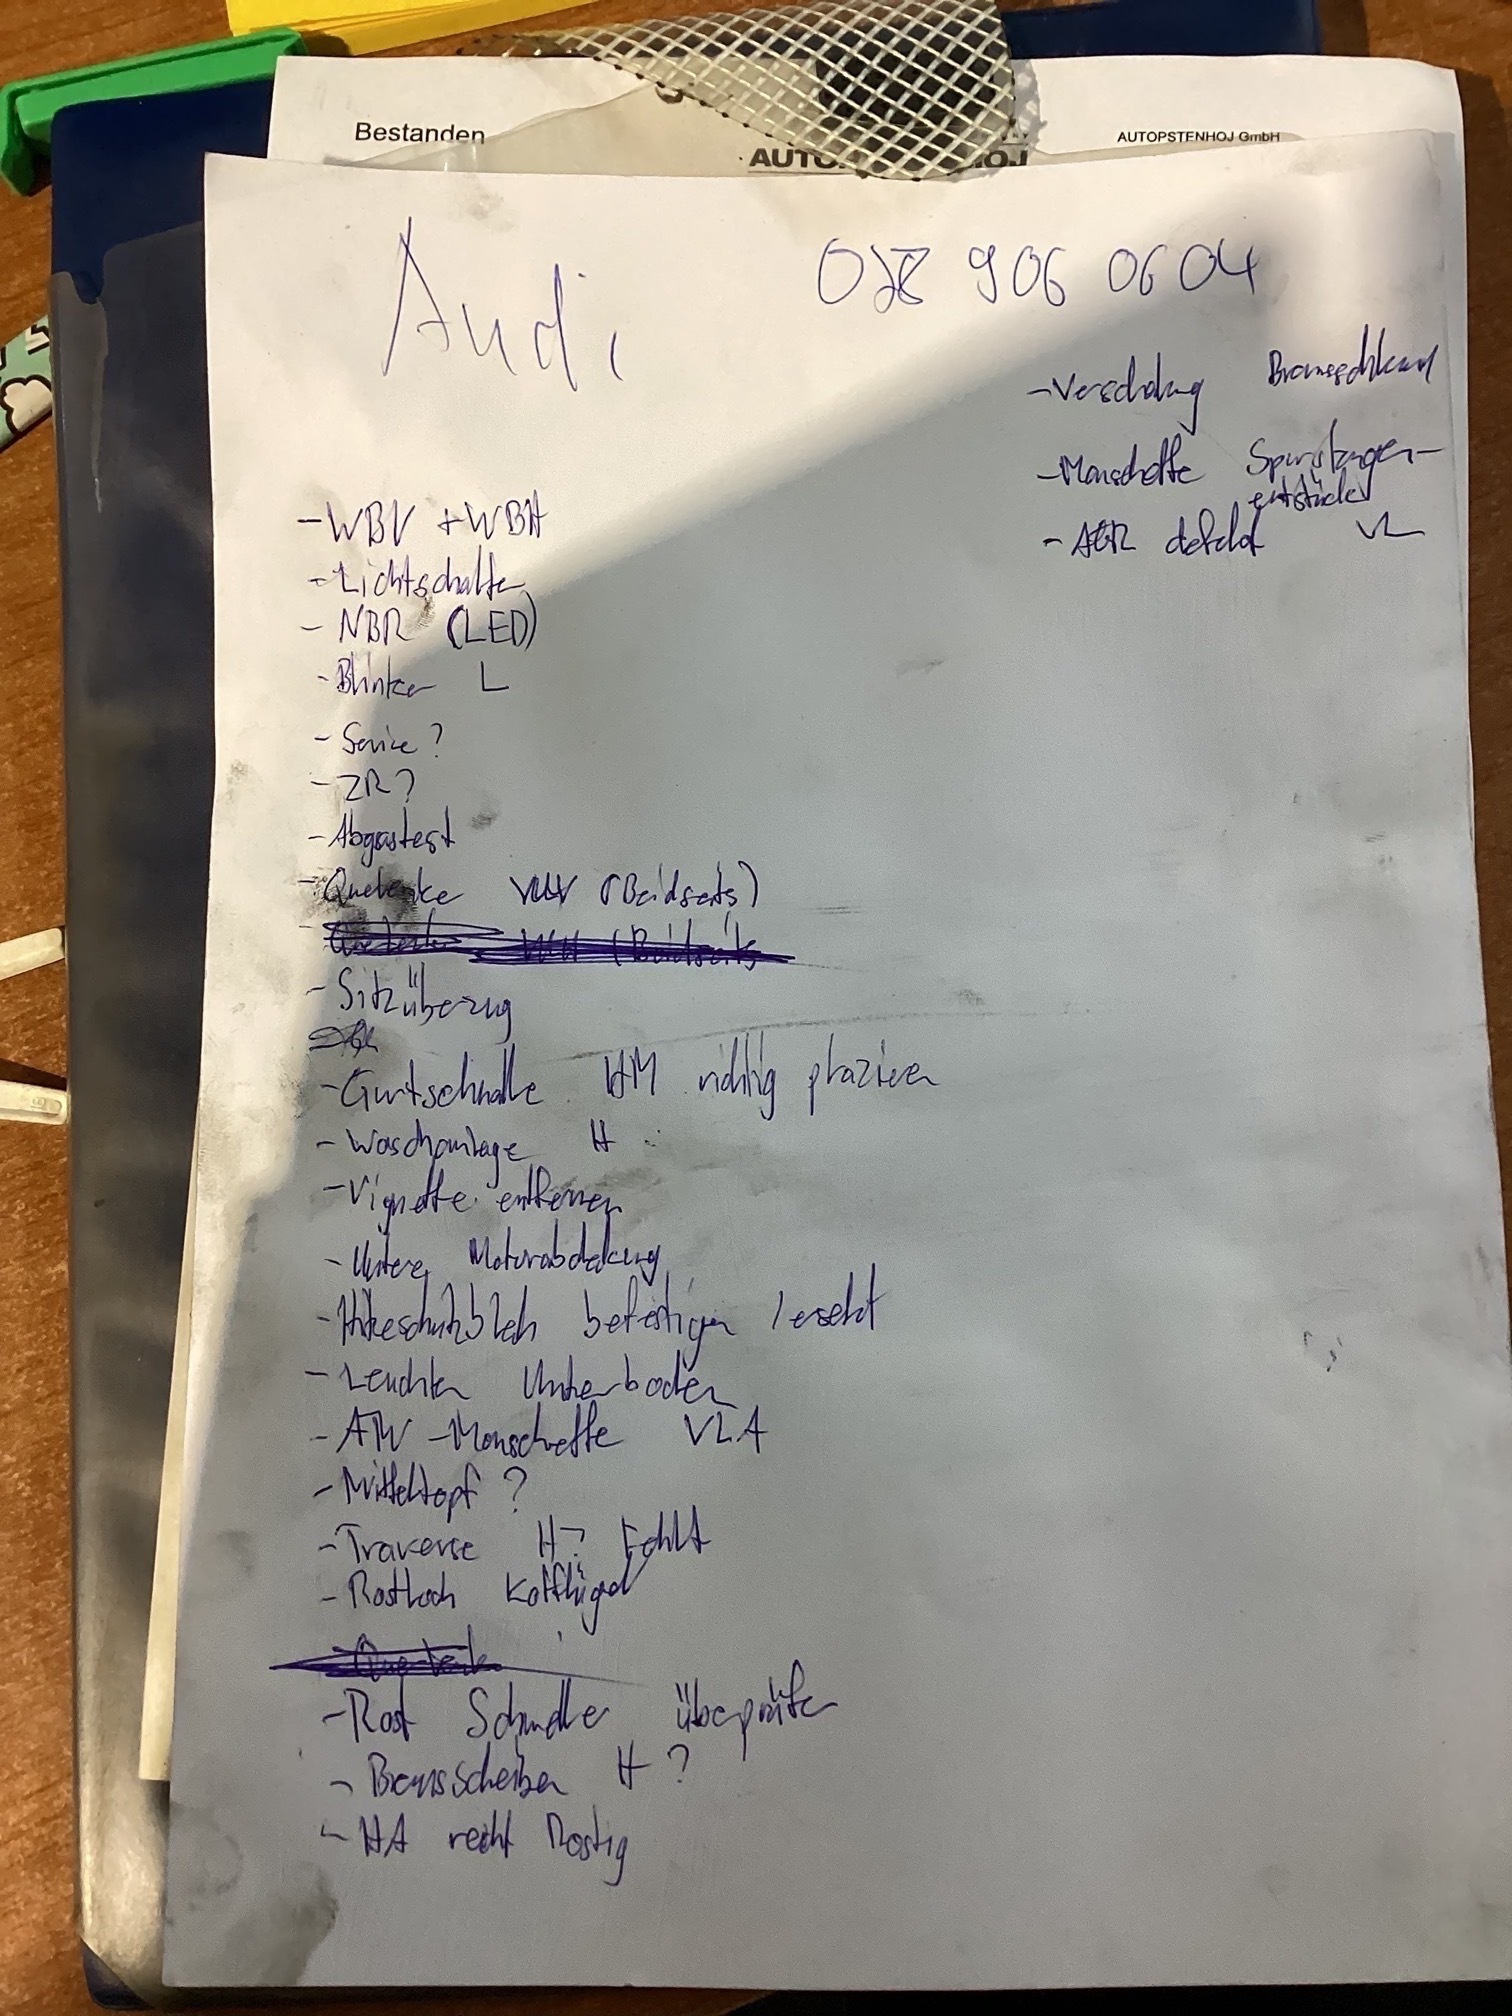 Bestanden
AUTOPSTENHOJ GmbH
Audi
078 906 0604
- Verschalung
- Manschette Spurstangen-
entstücke
- AGR defekt VL
- WBV + WBH
- Lichtschalter
- NBR (LED)
- Blinker L
- Service?
- ZR?
- Abgastest
- Querlenke (Beidseits)
- Sitzüberzug
- Gurtschnalle HM richtig plazieren
- Waschanlage H
- Vignette entfernen
- Untere Motorabdekung
- Hitzeschutzblech befestigen / ersetzt
- Leuchten Unterboden
- ATW - Manschette VLA
- Mitteltopf ?
- Traverse H? Fehlt
- Rostloch Kotflügel
- Rost Schweller überprüfen
- Bremsscheiben H ?
- HA recht Rostig